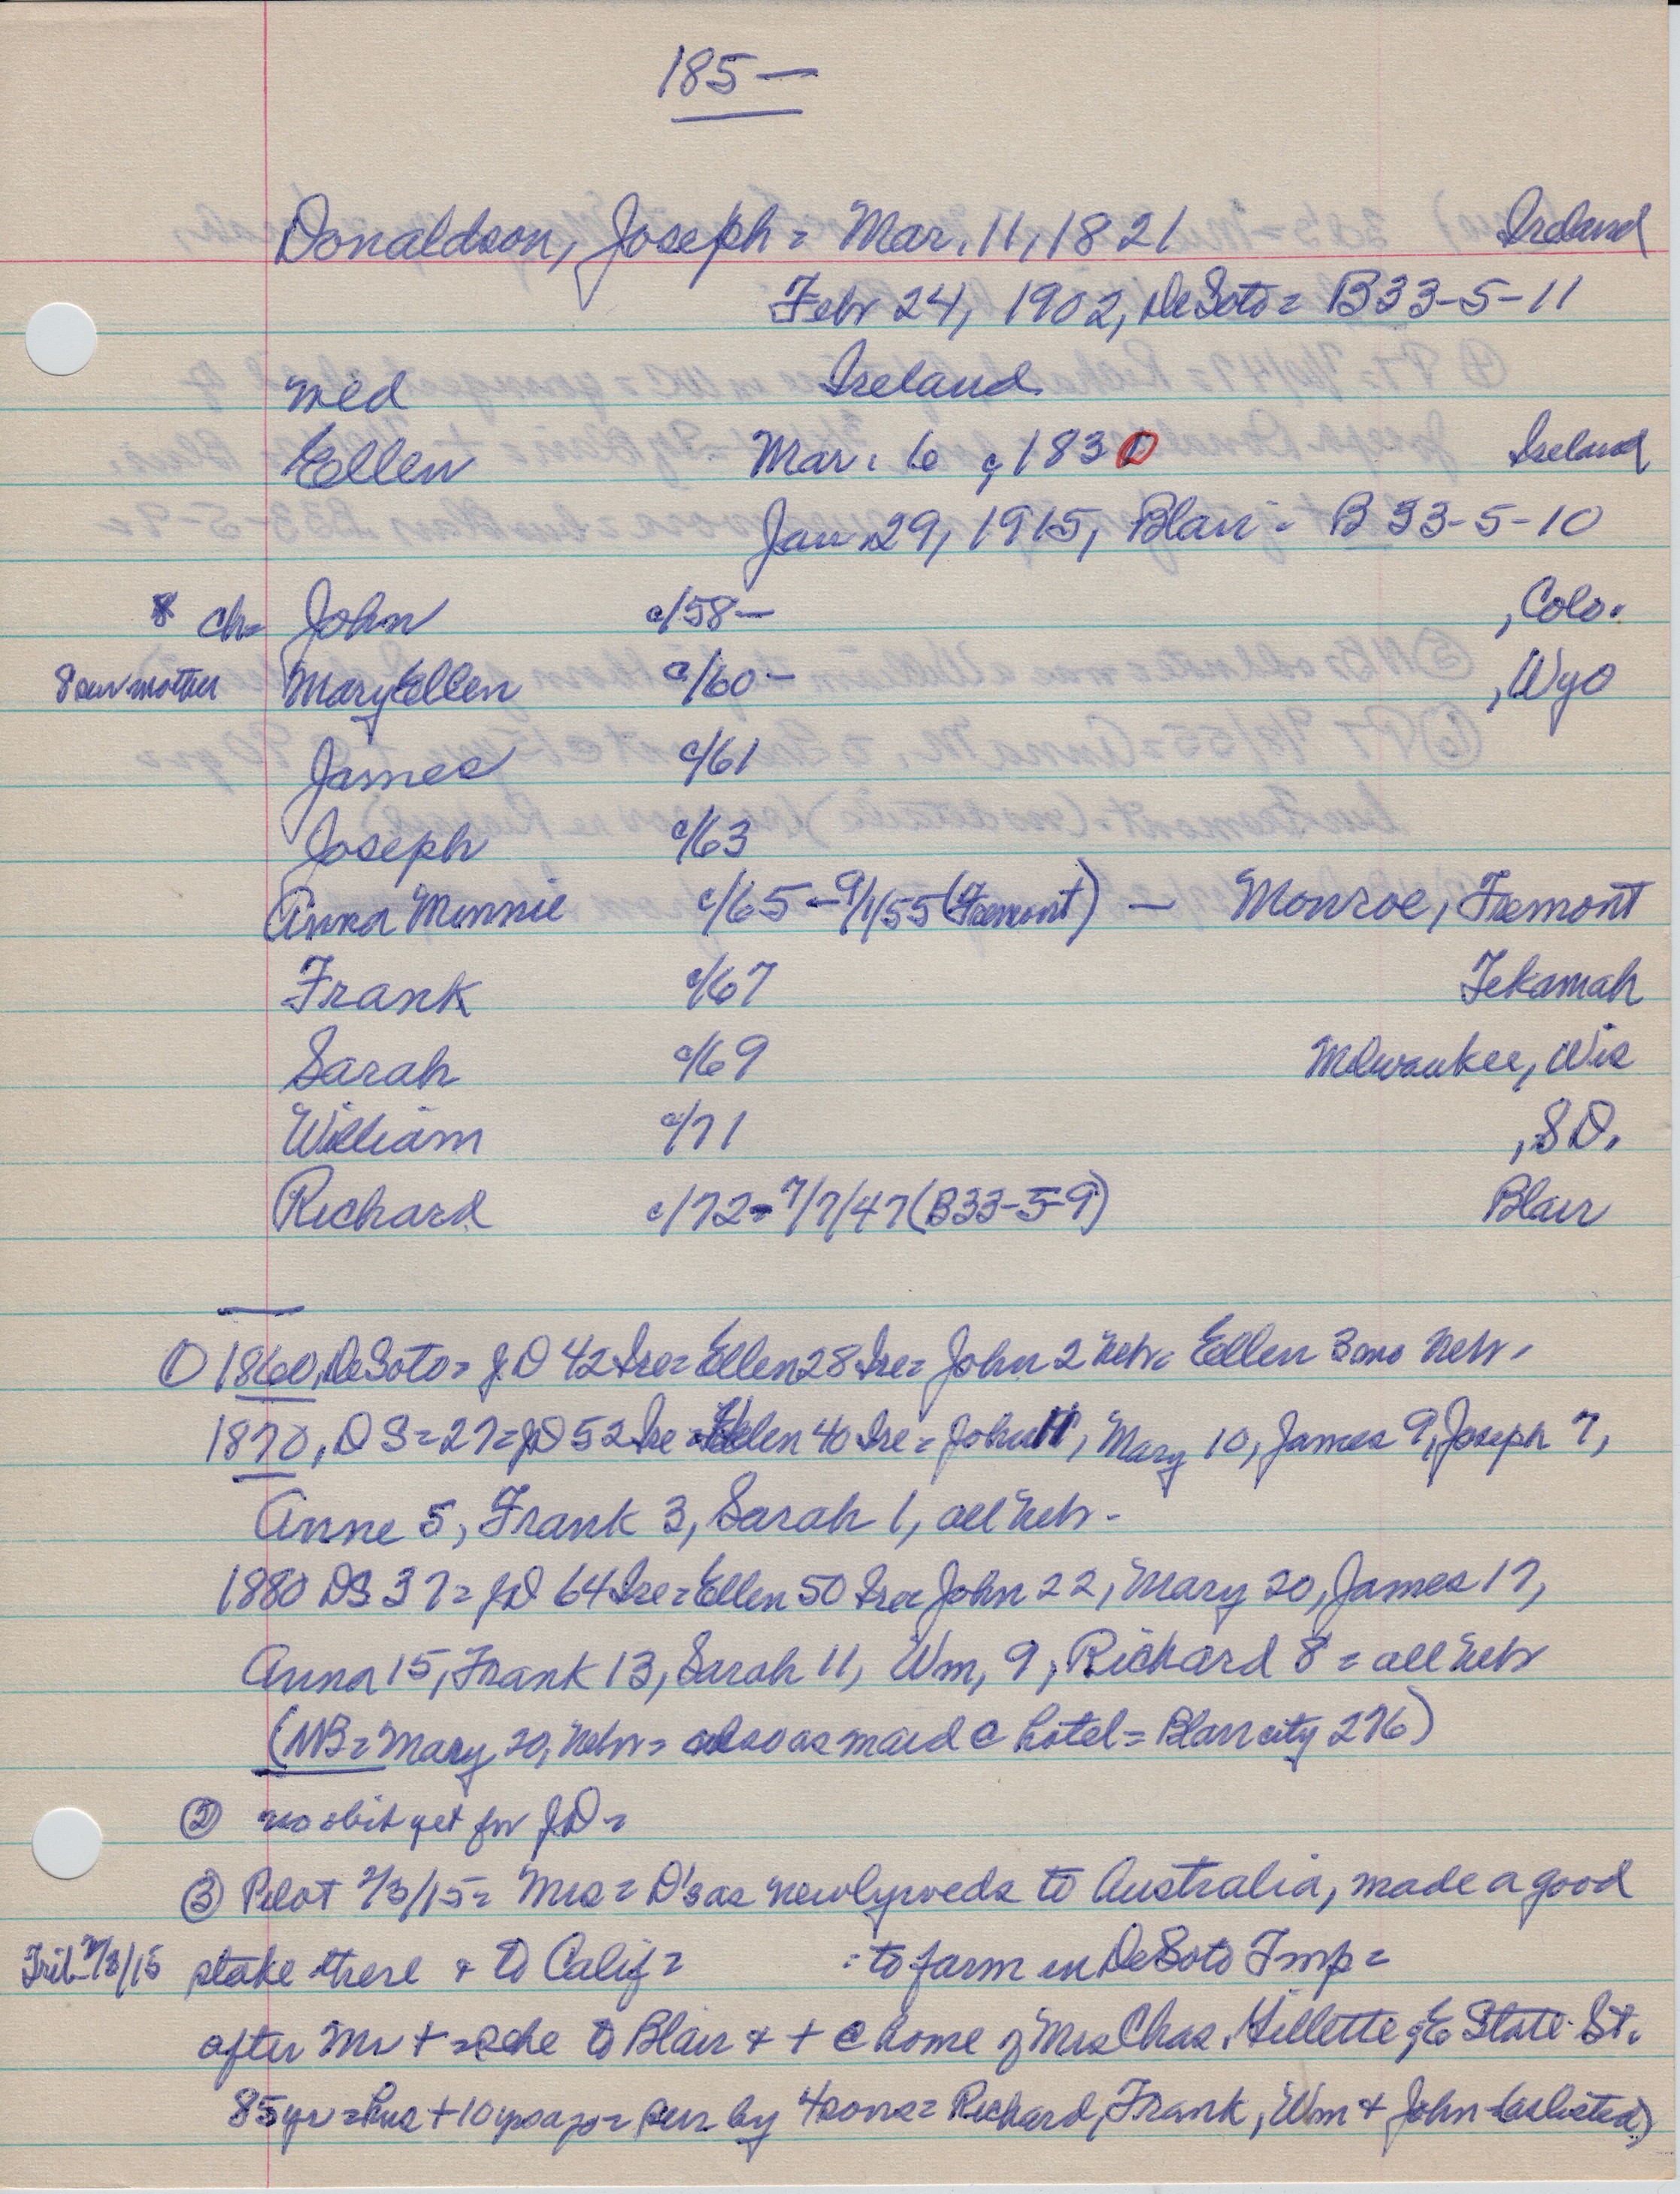 185—
Donaldson, Joseph = Mar. 11, 1821 Ireland
Febr 24, 1902, DeSoto = B33-5-11
med Ireland
Ellen Mar. 6, 1830 Ireland
Jan 29, 1915, Blair = B 33-5-10
8 ch= John c/58— , Colo.
8 sur mother Mary Ellen c/60- , Wyo
James c/61
Joseph c/63
Anna Minnie c/65 - 9/1/55 (Fremont) — Monroe, Fremont
Frank c/67 Tekamah
Sarah c/69 Milwaukee, Wis
William c/71 , S.D.
Richard c/72 - 7/7/47 (B33-5-9) Blair
① 1860, DeSoto = J.D 42 Ire = Ellen 28 Ire = John 2 Nebr = Ellen 3mo Nebr.
1870, DS = 27 = JD 52 Ire = Ellen 40 Ire = John 11, Mary 10, James 9, Joseph 7,
Anne 5, Frank 3, Sarah 1, all Nebr.
1880 DS 37 = JD 64 Ire = Ellen 50 Ire = John 22, Mary 20, James 17,
Anna 15, Frank 13, Sarah 11, Wm, 9, Richard 8 = all Nebr
(NB = Mary 20, Nebr = also as maid @ hotel = Blair city 276)
② no obit yet for JD =
③ Pilot 2/3/15 = Mrs = D's as newlyweds to Australia, made a good
Trib 2/3/15 stake there & to Calif = = to farm in DeSoto Twp =
after Mr + = she to Blair & + @ home of Mrs Chas. Gillette of E State St.
85 yr = hus + 10 yrs ago = sur by 4 sons = Richard, Frank, Wm & John (as listed)